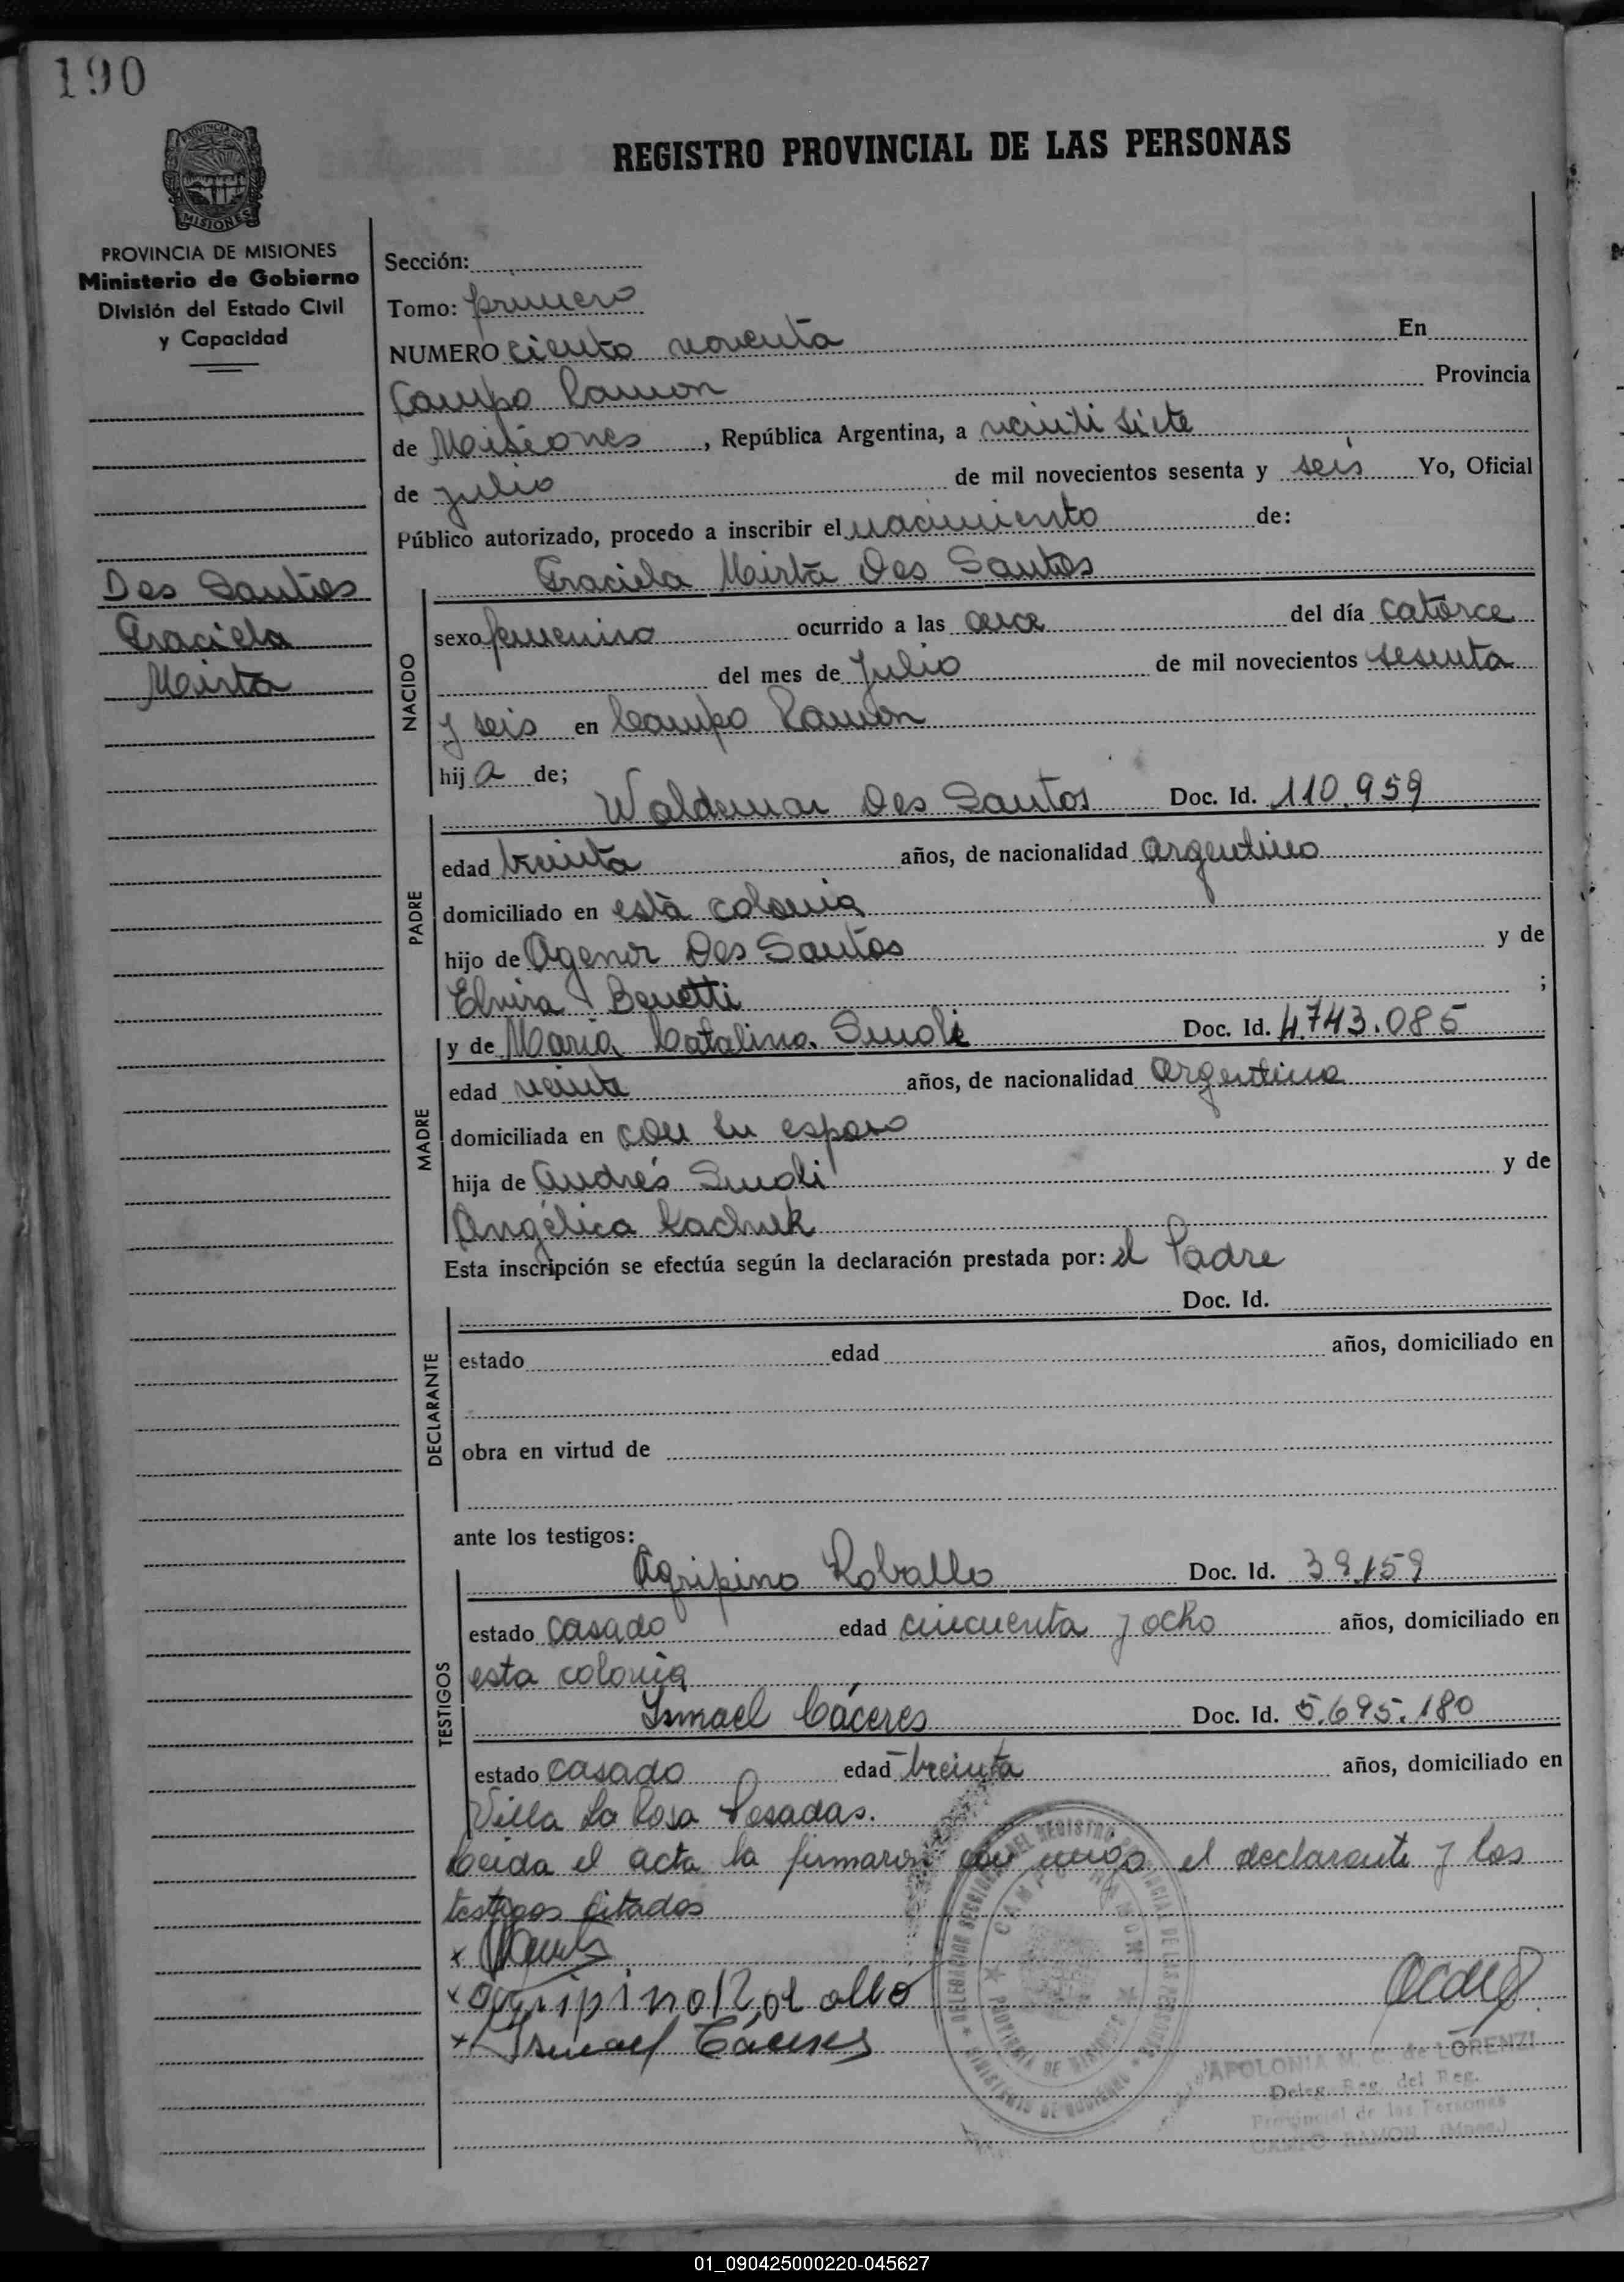 190
PROVINCIA DE
MISIONES
REGISTRO PROVINCIAL DE LAS PERSONAS
PROVINCIA DE MISIONES
Ministerio de Gobierno
División del Estado Civil
y Capacidad
Des Santos
Graciela
Mirta
Sección:
Tomo: primero
NUMERO ciento noventa En
Campo Ramon Provincia
de Misiones, República Argentina, a veinti siete
de julio de mil novecientos sesenta y seis Yo, Oficial
Público autorizado, procedo a inscribir el nacimiento de:
NACIDO
Graciela Mirta Des Santos
sexo femenino ocurrido a las once del día catorce
del mes de Julio de mil novecientos sesenta
y seis en Campo Ramon
hij a de;
PADRE
Waldemar Des Santos Doc. Id. 110.959
edad treinta años, de nacionalidad argentino
domiciliado en esta colonia
hijo de Agenor Des Santos y de
Elvira Benetti ;
MADRE
y de Maria Catalina Smoli Doc. Id. 4.743.085
edad veinte años, de nacionalidad argentina
domiciliada en con su esposo
hija de Andrés Smoli y de
Angélica Kachuk
Esta inscripción se efectúa según la declaración prestada por: el Padre
DECLARANTE
Doc. Id.
estado edad años, domiciliado en
obra en virtud de
ante los testigos:
TESTIGOS
Agripino Roballo Doc. Id. 39.159
estado casado edad cincuenta y ocho años, domiciliado en
esta colonia
Ismael Cáceres Doc. Id. 5.695.180
estado casado edad treinta años, domiciliado en
Villa La Rosa Posadas.
Leida el acta la firmaron con migo el declarante y los
testigos citados
x
x Agripino Roballo
x Ismael Cáceres
CAMPO RAMON
PROVINCIA DE MISIONES
MINISTERIO DE GOBIERNO
APOLONIA M. C. de LORENZI
Deleg. Reg. del Reg.
Provincial de las Personas
CAMPO RAMON (Mnes.)
01_090425000220-045627